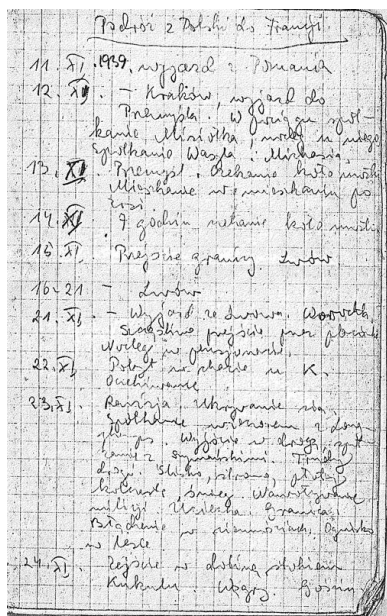 Podróż z Polski do Francji
11. XI. 1939. wyjazd z Poznania
12. XI – Kraków, wyjazd do
Przemyśla. W pociągu spot-
kanie Misiołka, nocleg u niego
Spotkanie
13. XI. Przemyśl. Czekanie koło mostu
Mieszkanie w mieszkaniu po
14. XI 7 godzin czekanie koło mostu
15. XI. Przejście granicy. Lwów
16-21 – Lwów
21. XI. – Wyjazd ze Lwowa. Worochta
Szczęśliwe przejście przez placówki
Nocleg w pensjonacie.
22. XI Pobyt w chacie u K.
Oczekiwanie
23. XI Rewizja. Ukrywanie się.
Spotkanie wieczorem z
Wyjście w drogę, spot-
kanie z Trudy
drogi. Ślisko, stromo, płoty
kolczaste, śnieg.
milicji. Ucieczka. Granica.
Błądzenie w ciemnościach. Ognisko
w lesie
24. XI Zejście w dolinę
Węgry.